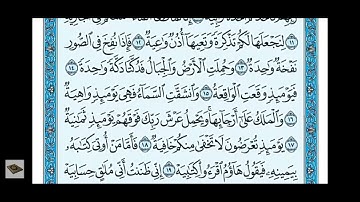 ١١ لِنَجْعَلَهَا لَكُمْ تَذْكِرَةً وَتَعِيَهَا أُذُنٌ وَٰعِيَةٌ ١٢ فَإِذَا نُفِخَ فِى ٱلصُّورِ
نَفْخَةٌ وَٰحِدَةٌ ١٣ وَحُمِلَتِ ٱلْأَرْضُ وَٱلْجِبَالُ فَدُكَّتَا دَكَّةً وَٰحِدَةً ١٤
فَيَوْمَئِذٍ وَقَعَتِ ٱلْوَاقِعَةُ ١٥ وَٱنشَقَّتِ ٱلسَّمَآءُ فَهِىَ يَوْمَئِذٍ وَاهِيَةٌ
١٦ وَٱلْمَلَكُ عَلَىٰٓ أَرْجَآئِهَا وَيَحْمِلُ عَرْشَ رَبِّكَ فَوْقَهُمْ يَوْمَئِذٍ ثَمَٰنِيَةٌ
١٧ يَوْمَئِذٍ تُعْرَضُونَ لَا تَخْفَىٰ مِنكُمْ خَافِيَةٌ ١٨ فَأَمَّا مَنْ أُوتِىَ كِتَٰبَهُۥ
بِيَمِينِهِۦ فَيَقُولُ هَآؤُمُ ٱقْرَءُوا۟ كِتَٰبِيَهْ ١٩ إِنِّى ظَنَنتُ أَنِّى مُلَٰقٍ حِسَابِيَهْ